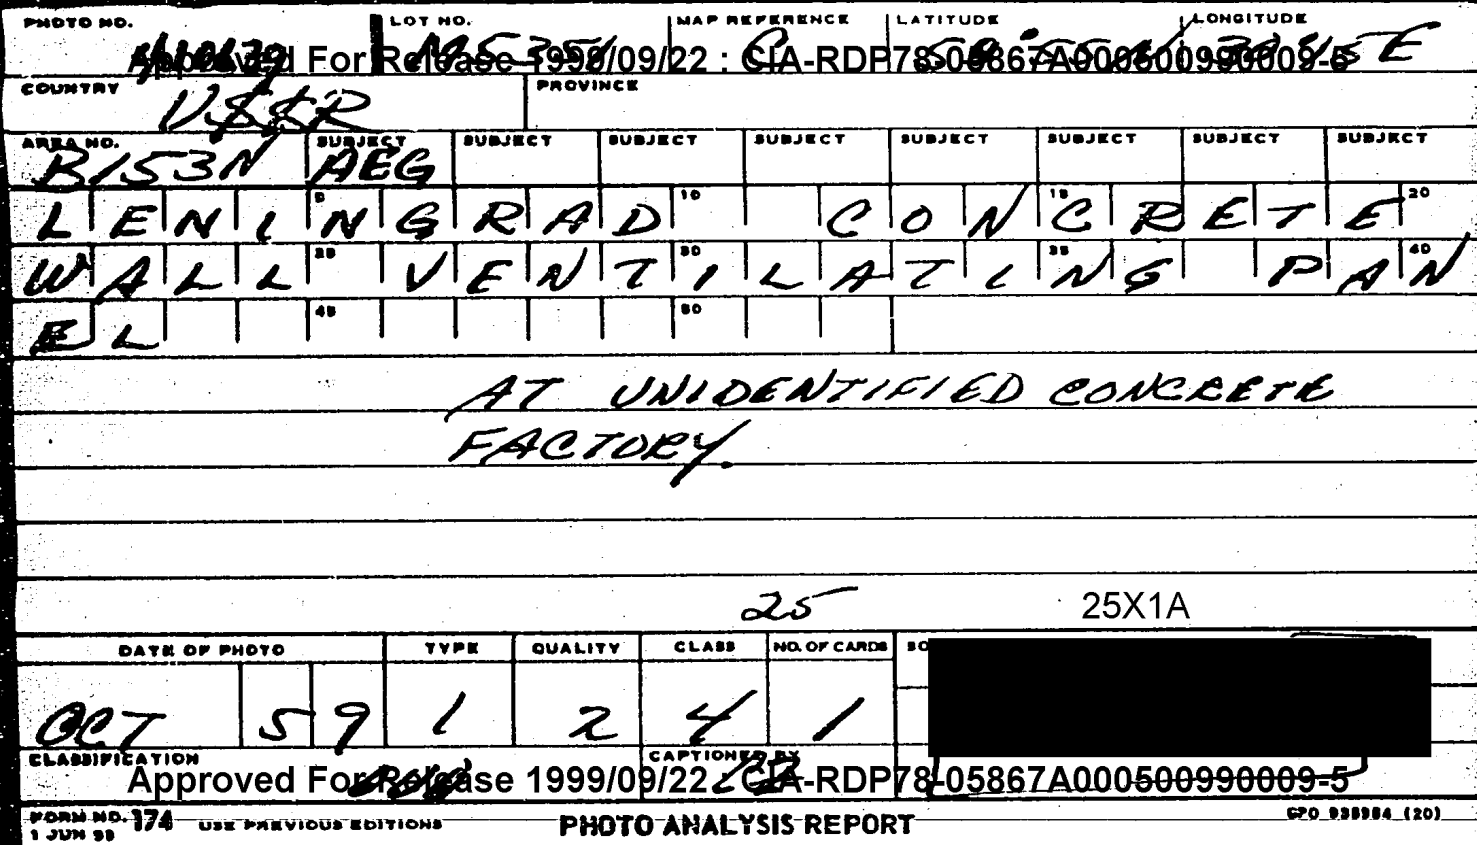 PHOTO NO. LOT NO. MAP REFERENCE LATITUDE LONGITUDE
Approved For Release 1999/09/22 : CIA-RDP78-05867A000500990009-5
COUNTRY USSR PROVINCE
AREA NO. B153N SUBJECT AEG SUBJECT SUBJECT SUBJECT SUBJECT SUBJECT SUBJECT SUBJECT
LENINGRAD 10 CON 15 CRETE 20
WALL 25 VENTILATING PAN 30 35 40
EL 45 50
AT UNIDENTIFIED CONCRETE
FACTORY.
25 25X1A
DATE OF PHOTO TYPE QUALITY CLASS NO. OF CARDS SO
OCT 59 1 2 4 1
CLASSIFICATION CAPTIONED BY
Approved For Release 1999/09/22 : CIA-RDP78-05867A000500990009-5
FORM NO. 374 USE PREVIOUS EDITIONS PHOTO ANALYSIS REPORT GPO 938984 (20)
1 JUN 59